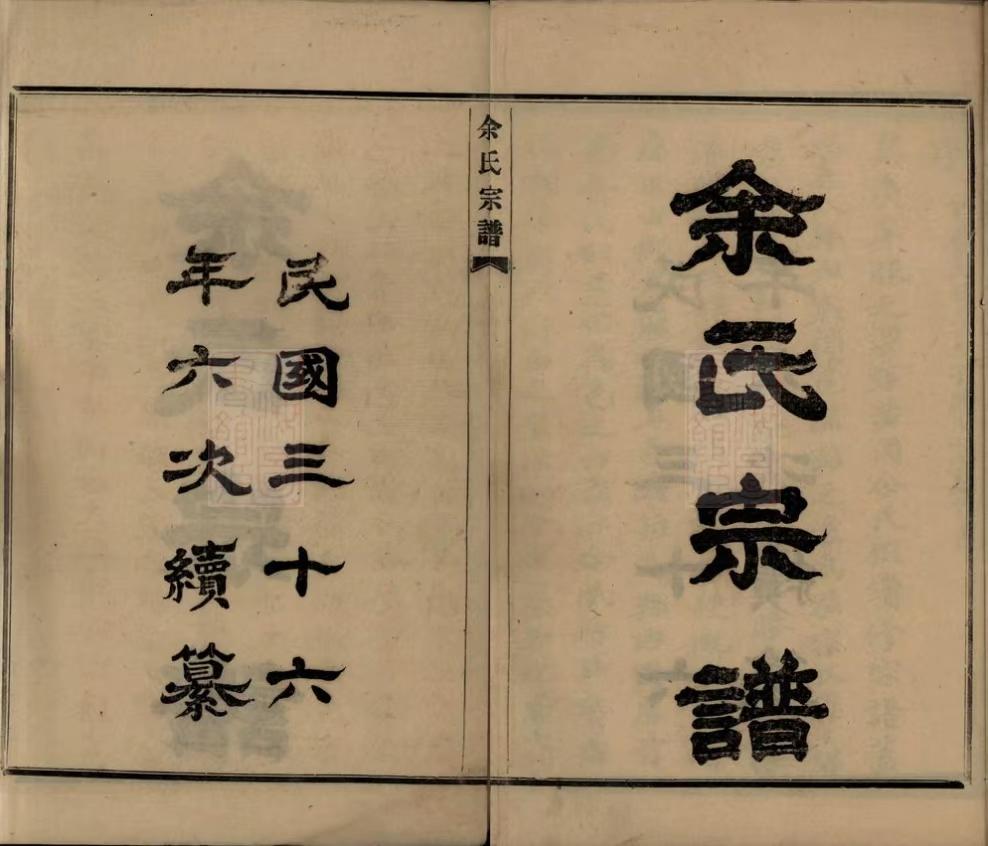 余氏宗譜
余氏宗譜
民國三十六
年六次續纂